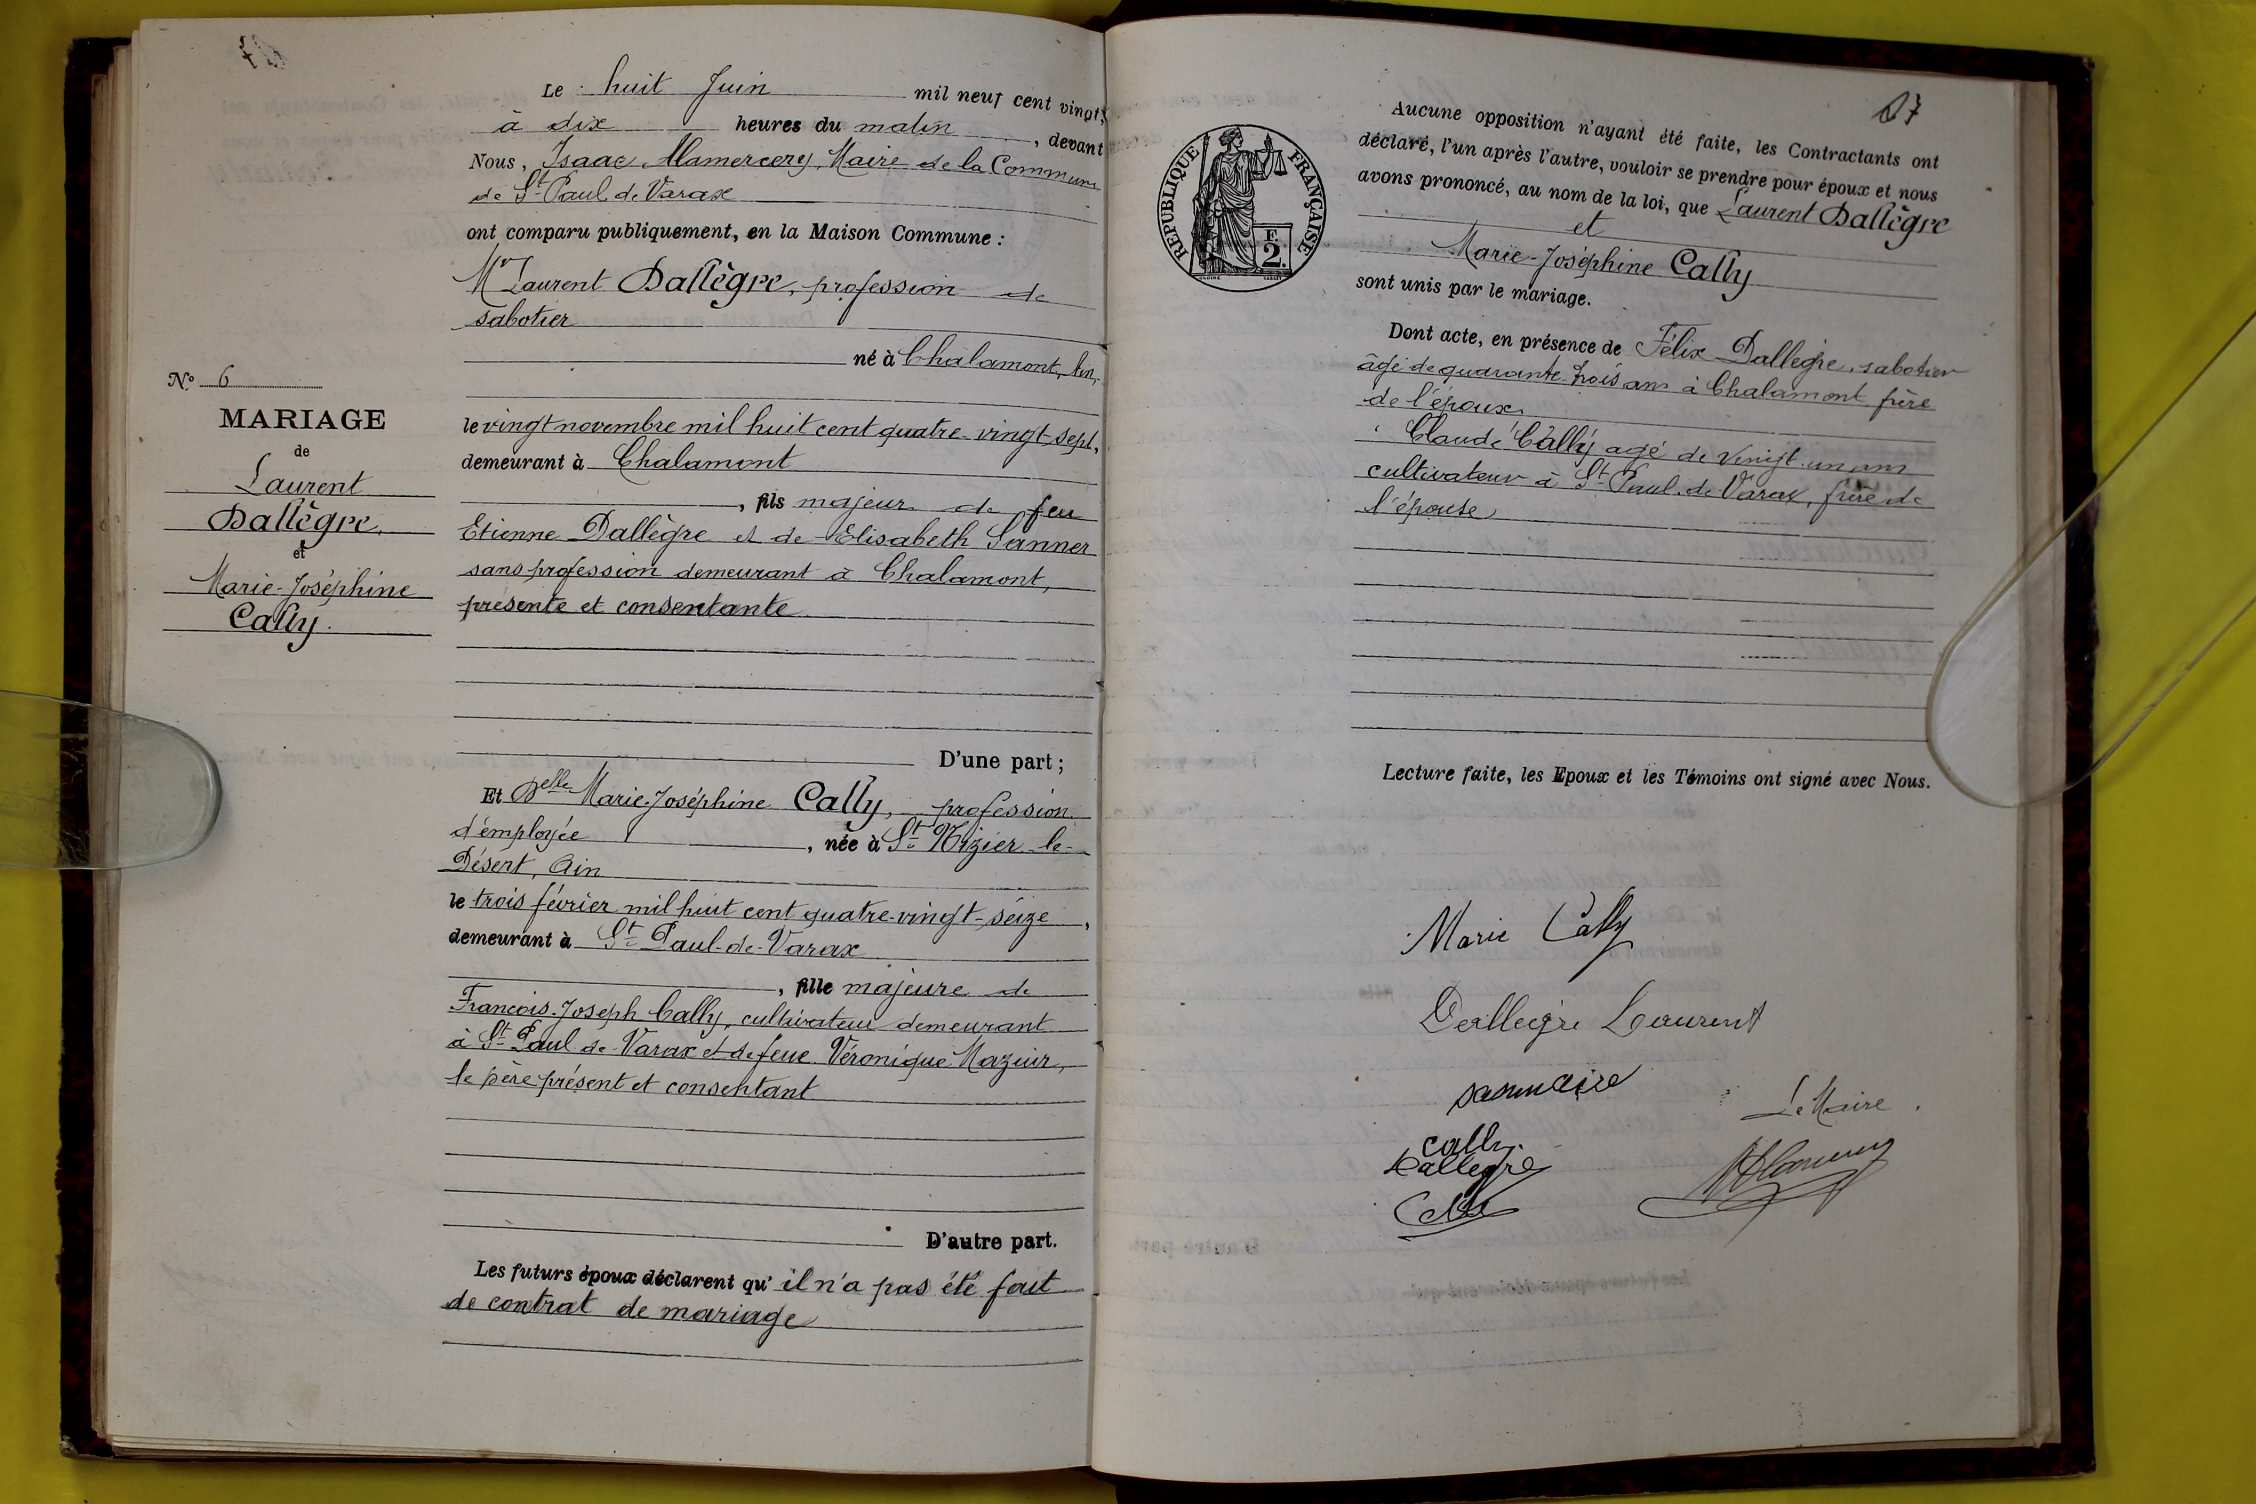 Le huit Juin mil neuf cent vingt,
à dix heures du matin, devant
Nous, Isaac Mamercery, Maire de la Commune
de St Paul de Varax
ont comparu publiquement, en la Maison Commune :
Mr Laurent Dallègre, profession de
sabotier
né à Chalamont, Ain,
le vingt novembre mil huit cent quatre-vingt-sept,
demeurant à Chalamont
, fils majeur de feu
Etienne Dallègre et de Elisabeth Sanner
sans profession demeurant à Chalamont,
présente et consentante
D'une part ;
Et Delle Marie-Joséphine Cally, profession
d'employée, née à St Nizier-le-
Désert, Ain
le trois février mil huit cent quatre-vingt-seize,
demeurant à St Paul-de-Varax
, fille majeure de
François-Joseph Cally, cultivateur demeurant
à St Paul de Varax et de feue Véronique Mazuir,
le père présent et consentant
D'autre part.
Les futurs époux déclarent qu'il n'a pas été fait
de contrat de mariage
No 6
MARIAGE
de
Laurent
Dallègre
et
Marie-Joséphine
Cally.
RÉPUBLIQUE FRANÇAISE
F.
2.
Aucune opposition n'ayant été faite, les Contractants ont
déclaré, l'un après l'autre, vouloir se prendre pour époux et nous
avons prononcé, au nom de la loi, que Laurent Dallègre
et
Marie-Joséphine Cally
sont unis par le mariage.
Dont acte, en présence de Félix Dallègre, sabotier
âgé de quarante-trois ans à Chalamont frère
de l'époux
Claude Cally agé de vingt-un ans
cultivateur à St Paul-de-Varax, frère de
l'épouse
Lecture faite, les Epoux et les Témoins ont signé avec Nous.
Marie Cally
Dallegre Laurent
Le Maire
cally
Dallegre